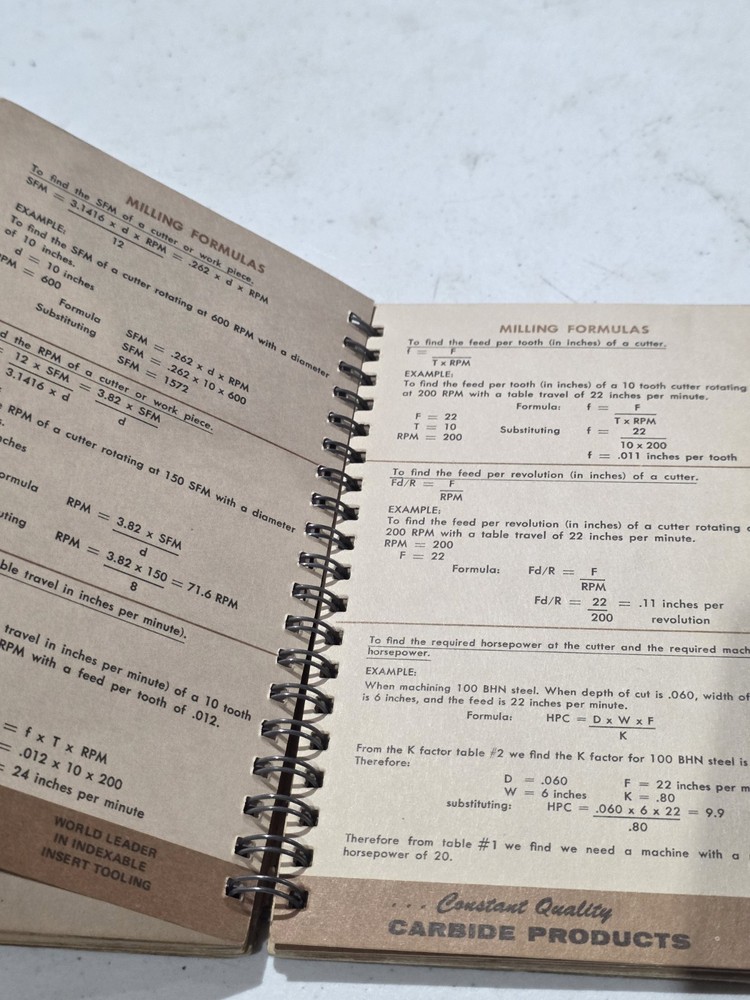 MILLING FORMULAS
To find the SFM of a cutter or work piece.
SFM = 3.1416 x d x RPM / 12 = .262 x d x RPM
EXAMPLE:
To find the SFM of a cutter rotating at 600 RPM with a diameter
of 10 inches.
d = 10 inches
RPM = 600
Formula SFM = .262 x d x RPM
Substituting SFM = .262 x 10 x 600
SFM = 1572
the RPM of a cutter or work piece.
= 12 x SFM / 3.1416 x d = 3.82 x SFM / d
RPM of a cutter rotating at 150 SFM with a diameter
RPM = 3.82 x SFM / d
RPM = 3.82 x 150 / 8 = 71.6 RPM
travel in inches per minute).
travel in inches per minute) of a 10 tooth
RPM with a feed per tooth of .012.
= f x T x RPM
= .012 x 10 x 200
= 24 inches per minute
WORLD LEADER
IN INDEXABLE
INSERT TOOLING
MILLING FORMULAS
To find the feed per tooth (in inches) of a cutter.
f = F / T x RPM
EXAMPLE:
To find the feed per tooth (in inches) of a 10 tooth cutter rotating
at 200 RPM with a table travel of 22 inches per minute.
Formula: f = F / T x RPM
F = 22
T = 10
RPM = 200
Substituting f = 22 / 10 x 200
f = .011 inches per tooth
To find the feed per revolution (in inches) of a cutter.
Fd/R = F / RPM
EXAMPLE:
To find the feed per revolution (in inches) of a cutter rotating
200 RPM with a table travel of 22 inches per minute.
RPM = 200
F = 22
Formula: Fd/R = F / RPM
Fd/R = 22 / 200 = .11 inches per
revolution
To find the required horsepower at the cutter and the required mach
horsepower.
EXAMPLE:
When machining 100 BHN steel. When depth of cut is .060, width of
is 6 inches, and the feed is 22 inches per minute.
Formula: HPC = D x W x F / K
From the K factor table #2 we find the K factor for 100 BHN steel is
Therefore:
D = .060 F = 22 inches per m
W = 6 inches K = .80
substituting: HPC = .060 x 6 x 22 / .80 = 9.9
Therefore from table #1 we find we need a machine with a
horsepower of 20.
... Constant Quality
CARBIDE PRODUCTS